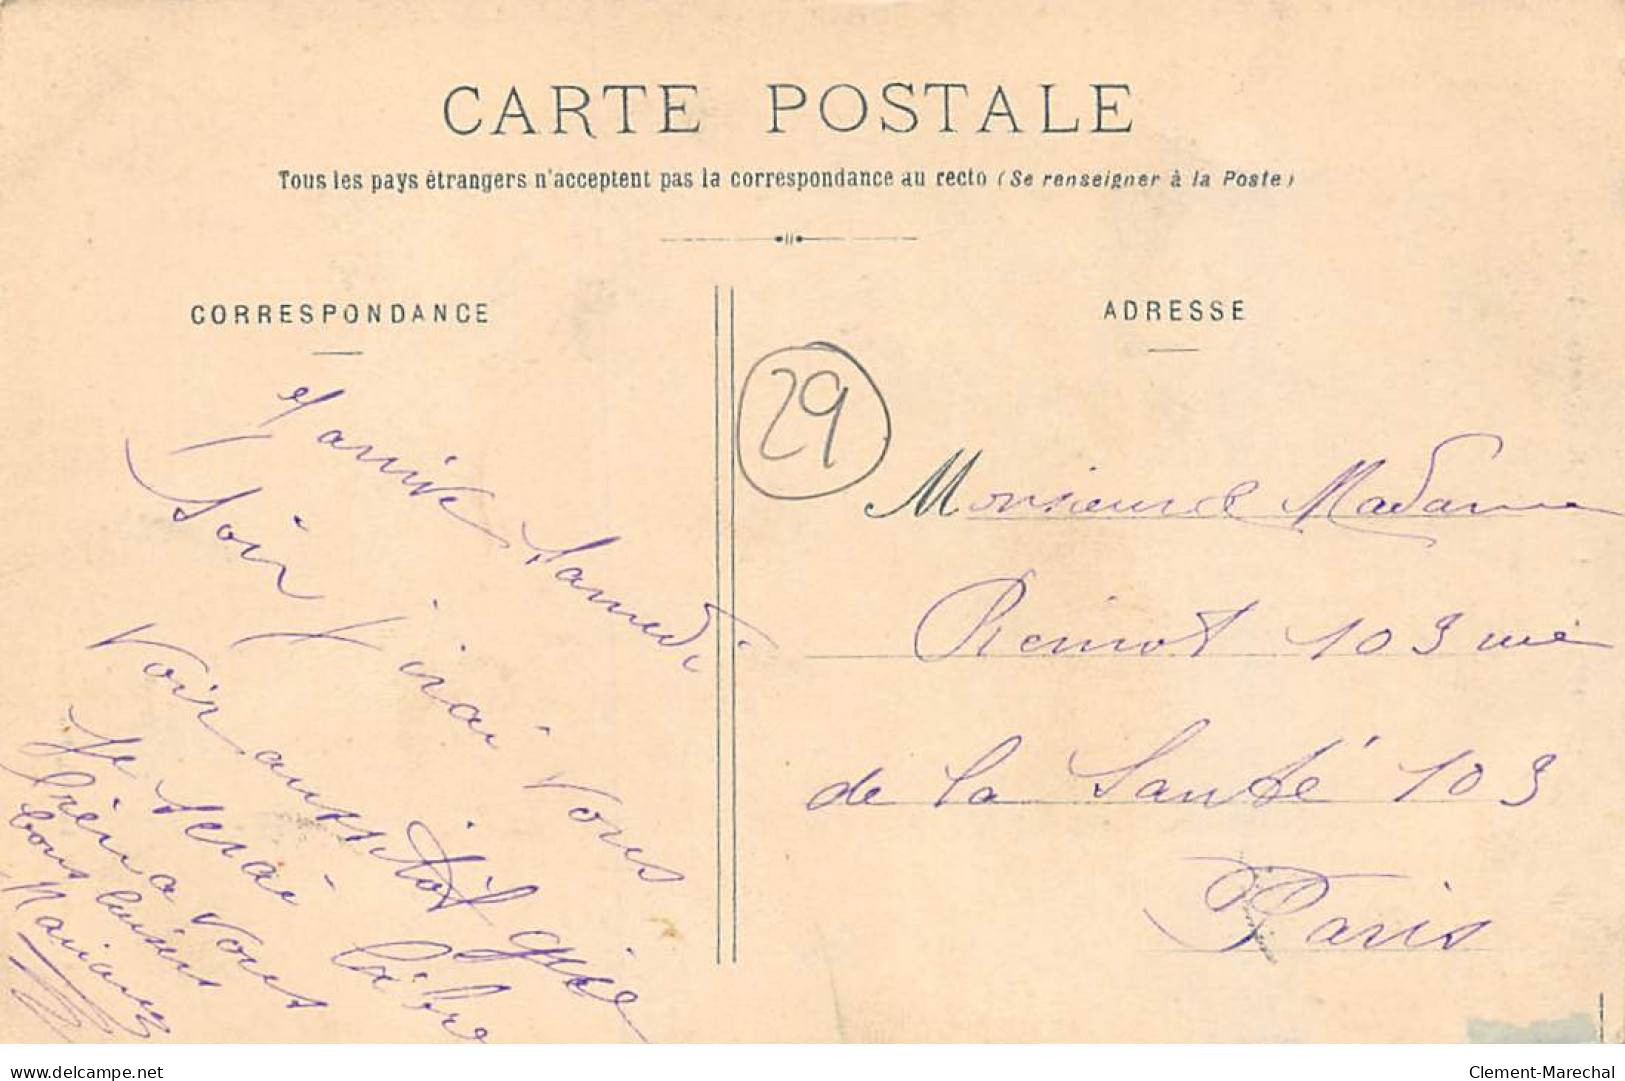 CARTE POSTALE
Tous les pays étrangers n'acceptent pas la correspondance au recto (Se renseigner à la Poste)
CORRESPONDANCE
J'arrive Samedi
Soir j'irai vous
voir aussitôt que
Je serai libre
bien a vous
bons baisers
ADRESSE
29
Monsieur & Madame
103 rue
de la Santé 103
Paris
delcampe.net
Clement-Marechal